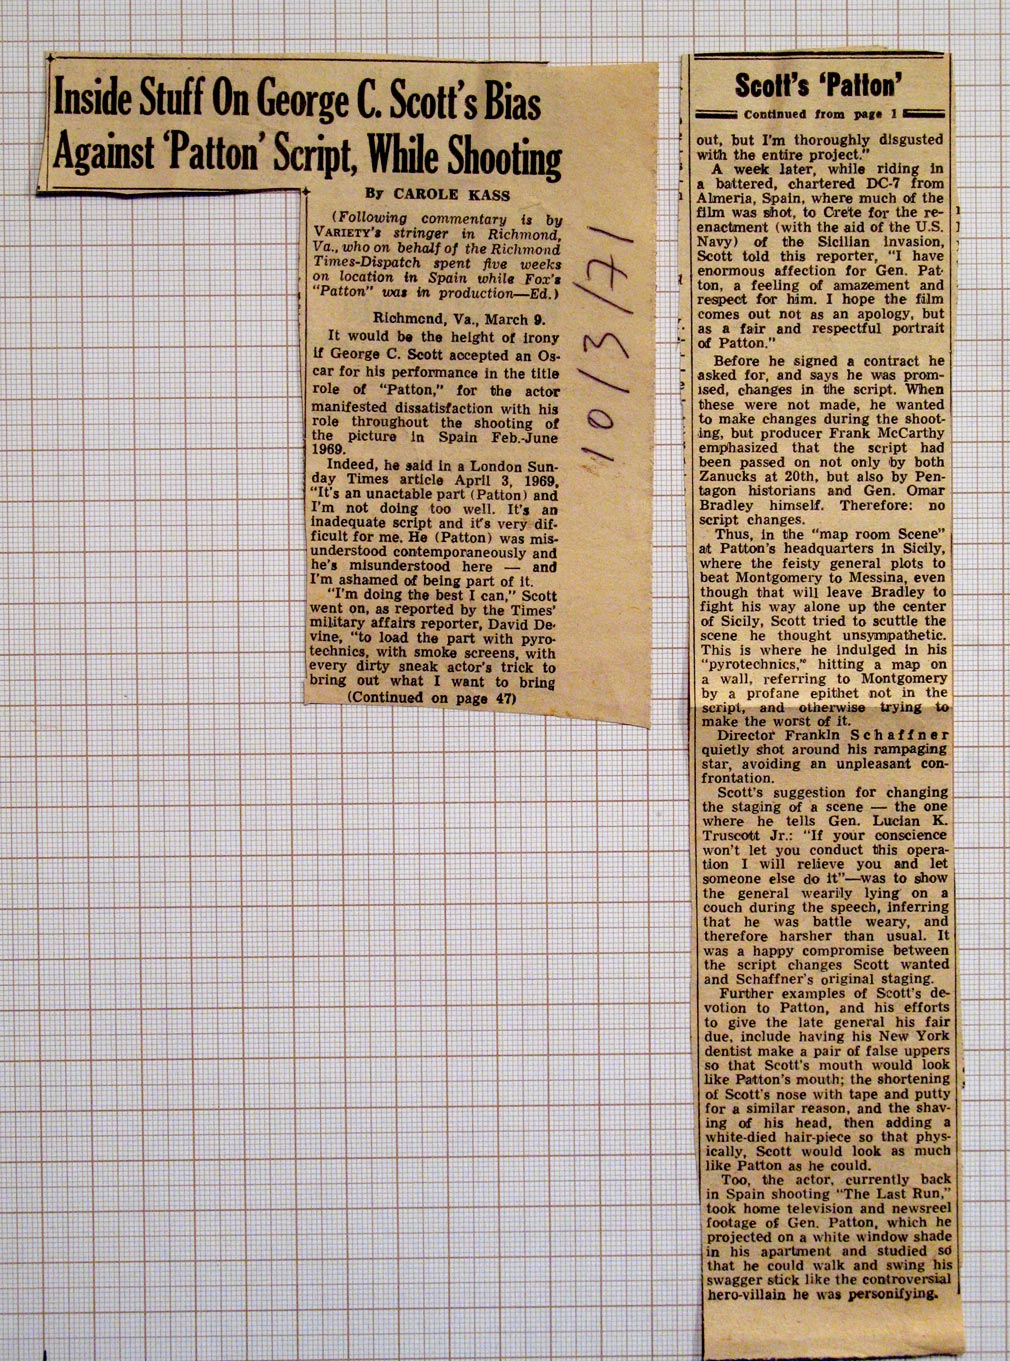 Inside Stuff On George C. Scott's Bias
Against 'Patton' Script, While Shooting
By CAROLE KASS
(Following commentary is by
VARIETY's stringer in Richmond,
Va., who on behalf of the Richmond
Times-Dispatch spent five weeks
on location in Spain while Fox's
"Patton" was in production—Ed.)
Richmond, Va., March 9.
It would be the height of irony
if George C. Scott accepted an Os-
car for his performance in the title
role of "Patton," for the actor
manifested dissatisfaction with his
role throughout the shooting of
the picture in Spain Feb.-June
1969.
Indeed, he said in a London Sun-
day Times article April 3, 1969,
"It's an unactable part (Patton) and
I'm not doing too well. It's an
inadequate script and it's very dif-
ficult for me. He (Patton) was mis-
understood contemporaneously and
he's misunderstood here — and
I'm ashamed of being part of it.
"I'm doing the best I can," Scott
went on, as reported by the Times'
military affairs reporter, David De-
vine, "to load the part with pyro-
technics, with smoke screens, with
every dirty sneak actor's trick to
bring out what I want to bring
(Continued on page 47)
10/3/71
Scott's 'Patton'
Continued from page 1
out, but I'm thoroughly disgusted
with the entire project."
A week later, while riding in
a battered, chartered DC-7 from
Almeria, Spain, where much of the
film was shot, to Crete for the re-
enactment (with the aid of the U.S.
Navy) of the Sicilian invasion,
Scott told this reporter, "I have
enormous affection for Gen. Pat-
ton, a feeling of amazement and
respect for him. I hope the film
comes out not as an apology, but
as a fair and respectful portrait
of Patton."
Before he signed a contract he
asked for, and says he was prom-
ised, changes in the script. When
these were not made, he wanted
to make changes during the shoot-
ing, but producer Frank McCarthy
emphasized that the script had
been passed on not only by both
Zanucks at 20th, but also by Pen-
tagon historians and Gen. Omar
Bradley himself. Therefore: no
script changes.
Thus, in the "map room Scene"
at Patton's headquarters in Sicily,
where the feisty general plots to
beat Montgomery to Messina, even
though that will leave Bradley to
fight his way alone up the center
of Sicily, Scott tried to scuttle the
scene he thought unsympathetic.
This is where he indulged in his
"pyrotechnics," hitting a map on
a wall, referring to Montgomery
by a profane epithet not in the
script, and otherwise trying to
make the worst of it.
Director Frankln Schaffner
quietly shot around his rampaging
star, avoiding an unpleasant con-
frontation.
Scott's suggestion for changing
the staging of a scene — the one
where he tells Gen. Lucian K.
Truscott Jr.: "If your conscience
won't let you conduct this opera-
tion I will relieve you and let
someone else do it"—was to show
the general wearily lying on a
couch during the speech, inferring
that he was battle weary, and
therefore harsher than usual. It
was a happy compromise between
the script changes Scott wanted
and Schaffner's original staging.
Further examples of Scott's de-
votion to Patton, and his efforts
to give the late general his fair
due, include having his New York
dentist make a pair of false uppers
so that Scott's mouth would look
like Patton's mouth; the shortening
of Scott's nose with tape and putty
for a similar reason, and the shav-
ing of his head, then adding a
white-died hair-piece so that phys-
ically, Scott would look as much
like Patton as he could.
Too, the actor, currently back
in Spain shooting "The Last Run,"
took home television and newsreel
footage of Gen. Patton, which he
projected on a white window shade
in his apartment and studied so
that he could walk and swing his
swagger stick like the controversial
hero-villain he was personifying.